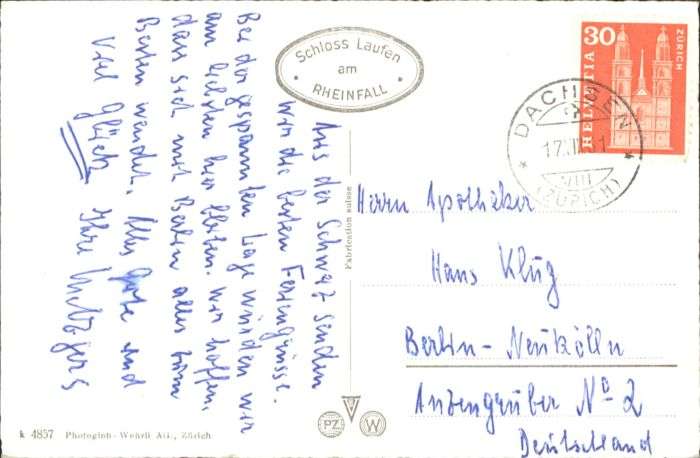 Aus der Schweiz senden
wir die besten Feriengrüsse.
Bei der gespannten Lage würden wir
am liebsten hier bleiben. Wir hoffen,
dass sich mit Berlin alles zum
Besten wendet. Alles Gute und
viel Glück Ihre
Schloss Laufen
am
RHEINFALL
30
HELVETIA
ZÜRICH
DACHSEN
(ZÜRICH)
Fabrication suisse
Herrn Apotheker
Hans Klug
Berlin-Neukölln
Anzengruber No 2
Deutschland
PZ
W
k 4857 Photoglob-Wehrli AG., Zürich